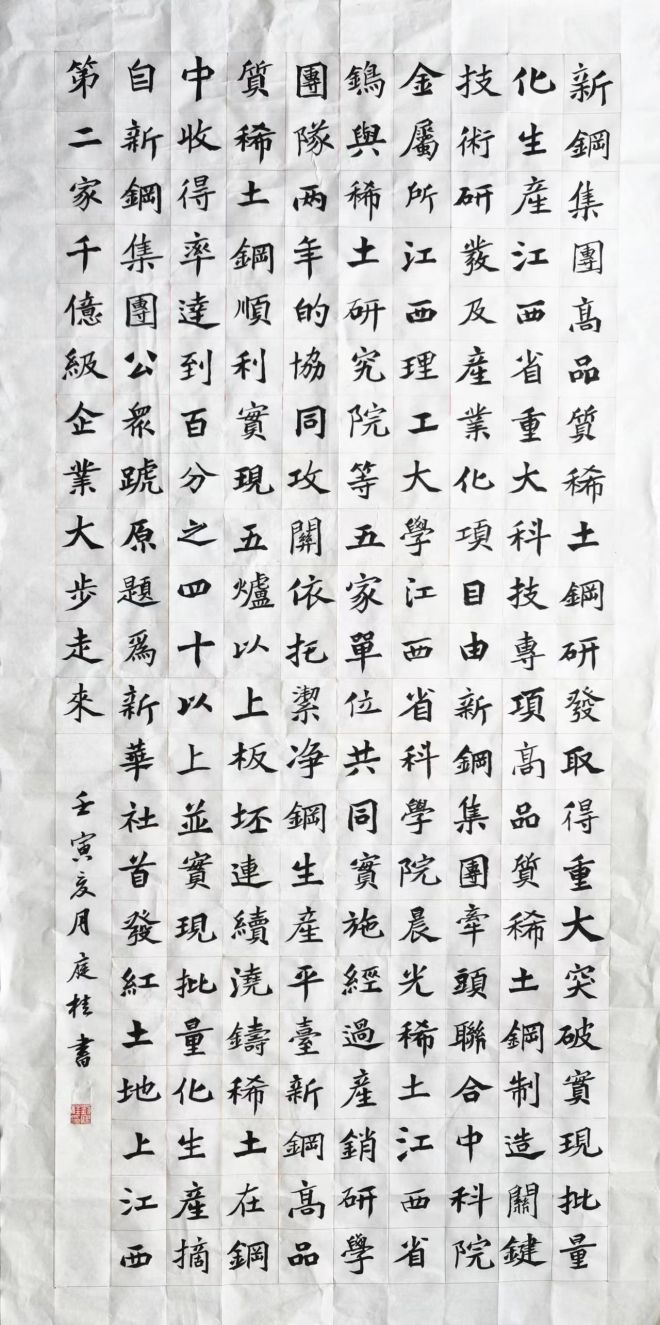 新鋼集團髙品質稀土鋼研發取得重大突破實現批量
化生産江西省重大科技專項髙品質稀土鋼制造關鍵
技術研發及産業化項目由新鋼集團牽頭聯合中科院
金屬所江西理工大學江西省科學院晨光稀土江西省
鎢與稀土研究院等五家單位共同實施經過産銷研學
團隊两年的協同攻關依托潔净鋼生産平臺新鋼髙品
質稀土鋼順利實現五爐以上板坯連續澆鑄稀土在鋼
中收得率達到百分之四十以上並實現批量化生産摘
自新鋼集團公衆號原題爲新華社首發紅土地上江西
第二家千億級企業大步走來 壬寅亥月庭桂書